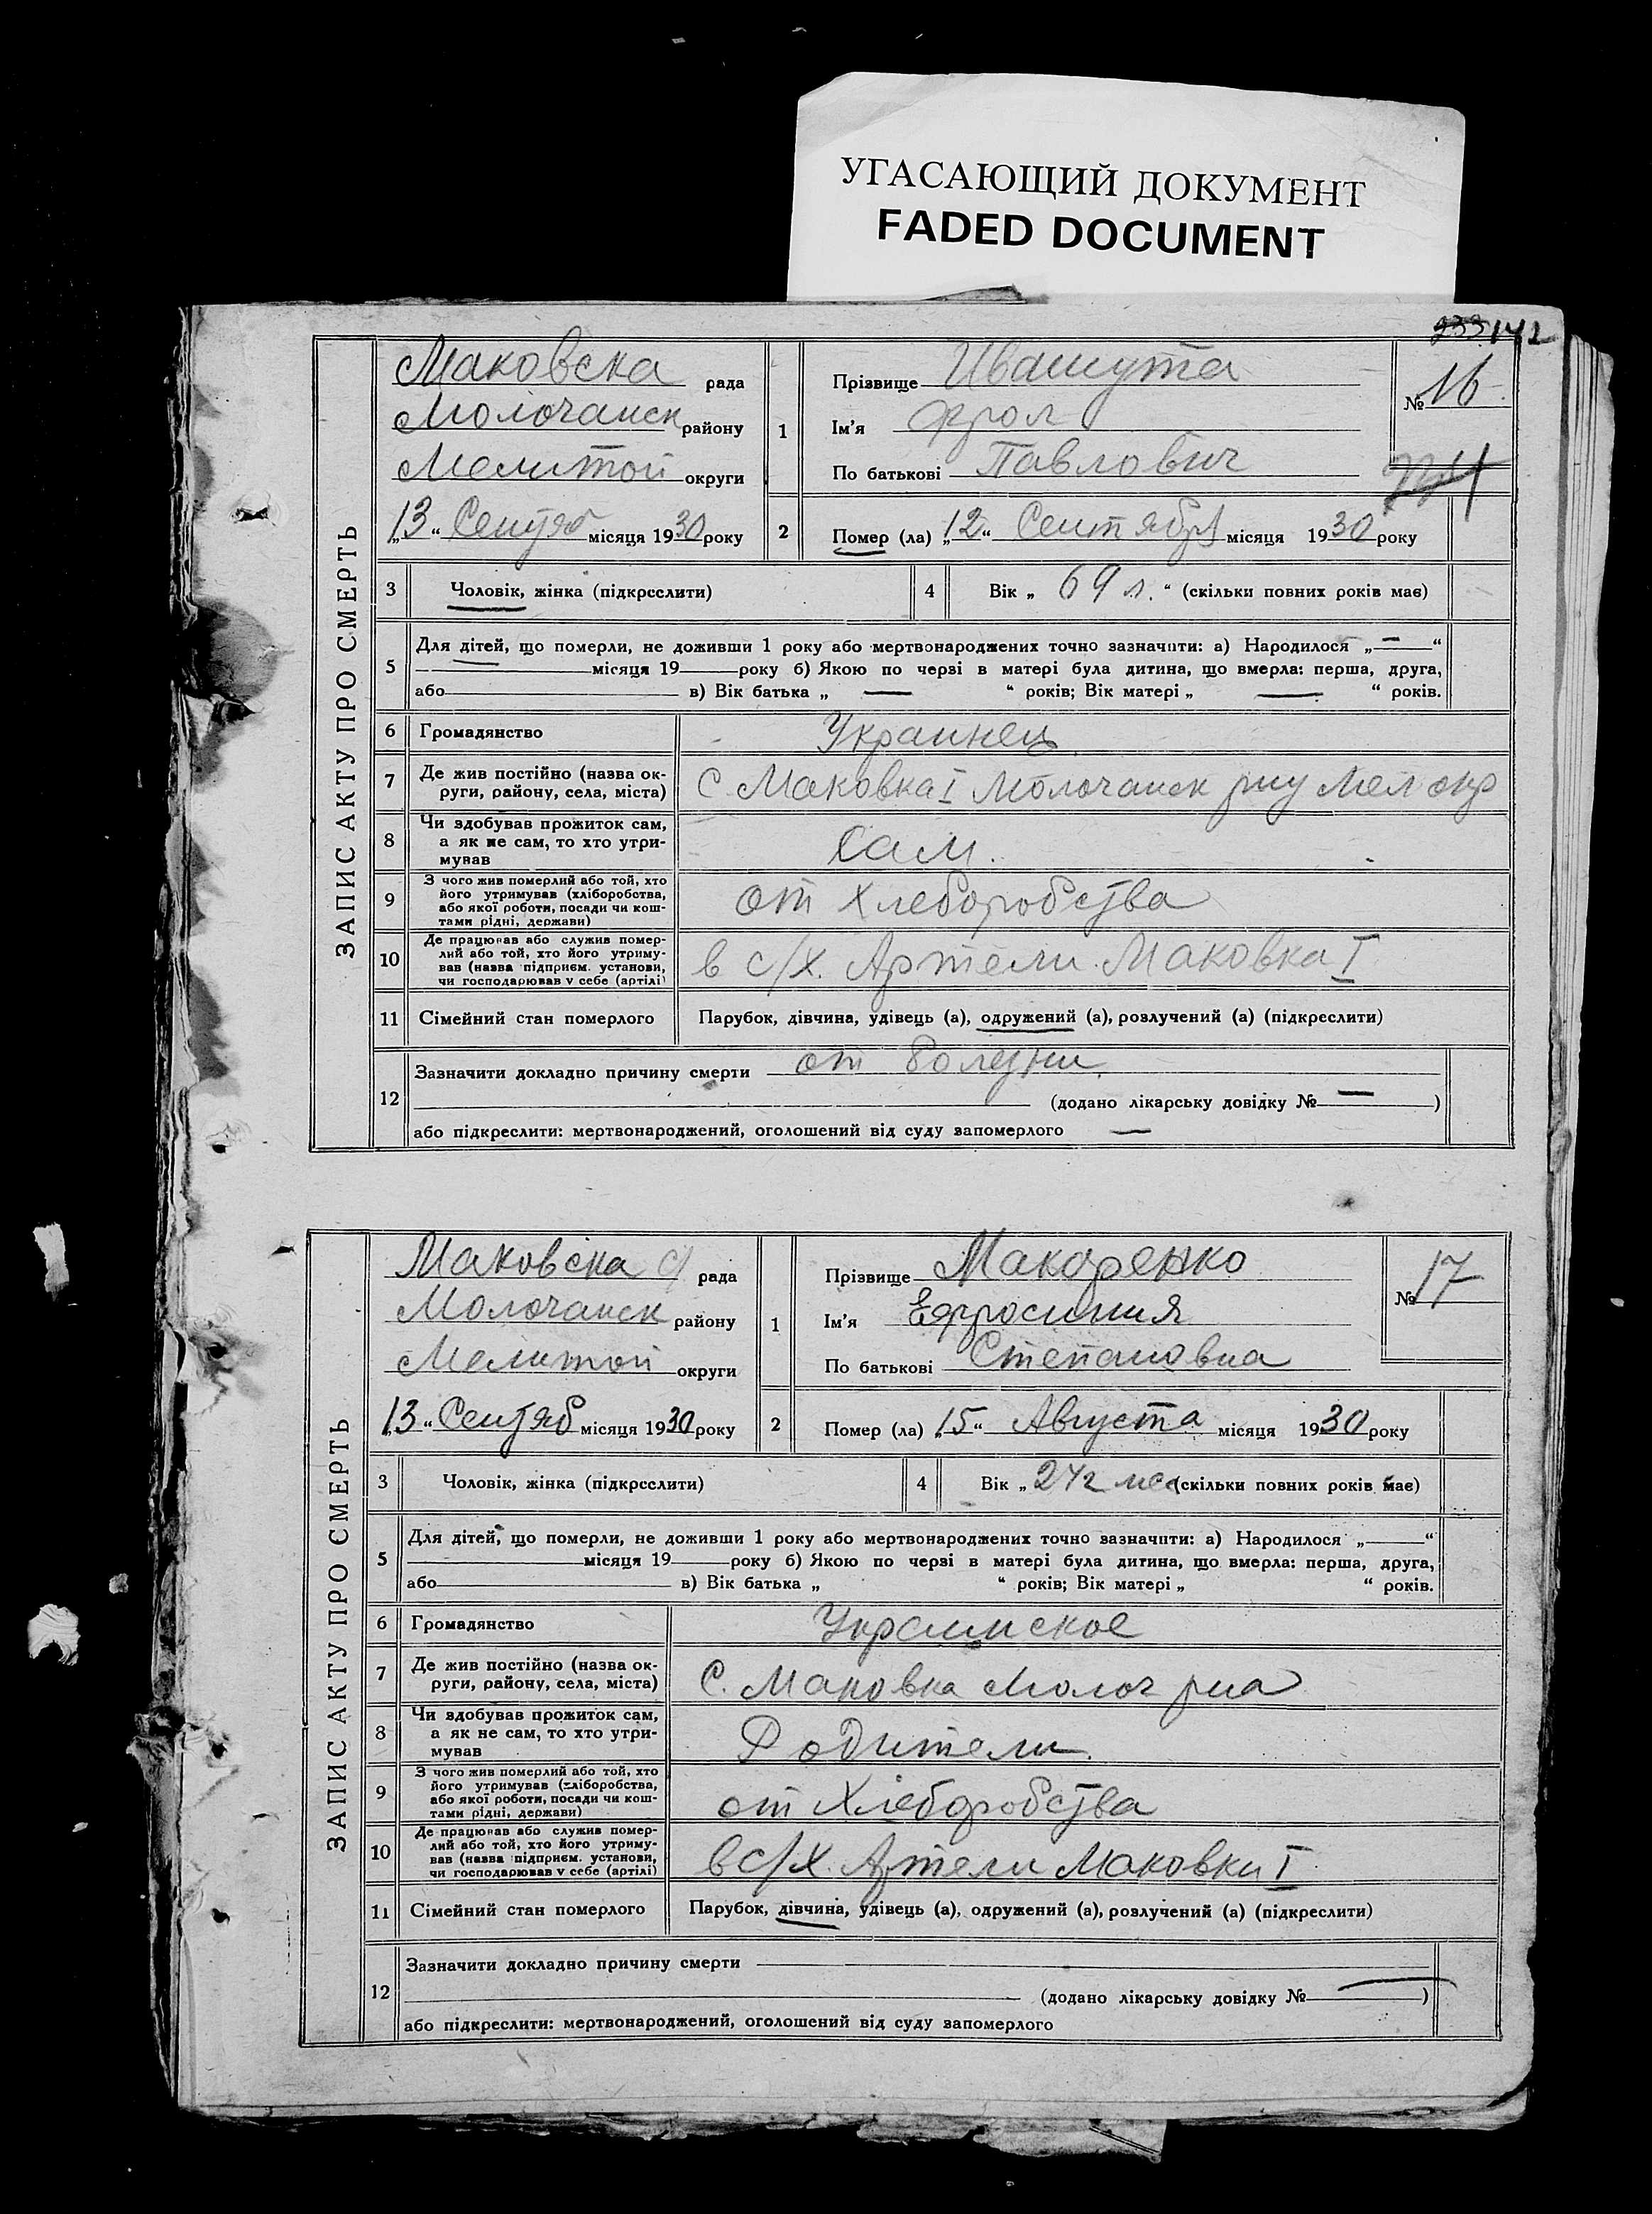 УГАСАЮЩИЙ ДОКУМЕНТ
FADED DOCUMENT
233 142
ЗАПИС АКТУ ПРО СМЕРТЬ
Маковска рада
Молочанск району
Мелитой округи
„13“ Сентяб місяця 1930 року
1 Прізвище Ивашута
Ім'я Фрол
По батькові Павлович
№ 16
2 Помер (ла) „12“ Сентября місяця 1930 року
3 Чоловік, жінка (підкреслити)
4 Вік „ 69 л. “ (скільки повних років має)
5 Для дітей, що померли, не доживши 1 року або мертвонароджених точно зазначити: а) Народилося „—“
— місяця 19 року б) Якою по черзі в матері була дитина, що вмерла: перша, друга,
або в) Вік батька „ — “ років; Вік матері „ — “ років.
6 Громадянство Украинец
7 Де жив постійно (назва ок-
руги, району, села, міста) С. Маковка I Молочанск рну Мел окр
8 Чи здобував прожиток сам,
а як не сам, то хто утри-
мував Сам.
9 З чого жив померлий або той, хто
його утримував (хліборобства,
або якої роботи, посади чи кош-
тами рідні, держави) от Хлеборобства
10 Де працював або служив помер-
лий або той, хто його утриму-
вав (назва підприєм. установи,
чи господарював у себе (артілі) в с/х. Артели Маковка I
11 Сімейний стан померлого Парубок, дівчина, удівець (а), одружений (а), розлучений (а) (підкреслити)
12 Зазначити докладно причину смерти от болезни.
(додано лікарську довідку № — )
або підкреслити: мертвонароджений, оголошений від суду запомерлого —
ЗАПИС АКТУ ПРО СМЕРТЬ
Маковска с/ рада
Молочанск району
Мелитой округи
„13“ Сентяб місяця 1930 року
1 Прізвище Макаренко
Ім'я Ефросиния
По батькові Степановна
№ 17
2 Помер (ла) „15“ Августа місяця 1930 року
3 Чоловік, жінка (підкреслити)
4 Вік „ мес (скільки повних років має)
5 Для дітей, що померли, не доживши 1 року або мертвонароджених точно зазначити: а) Народилося „ “
місяця 19 року б) Якою по черзі в матері була дитина, що вмерла: перша, друга,
або в) Вік батька „ “ років; Вік матері „ “ років.
6 Громадянство Украинское
7 Де жив постійно (назва ок-
руги, району, села, міста) С. Маковка Молоч рна
8 Чи здобував прожиток сам,
а як не сам, то хто утри-
мував Родители.
9 З чого жив померлий або той, хто
його утримував (хліборобства,
або якої роботи, посади чи кош-
тами рідні, держави) от Хлеборобства
10 Де працював або служив помер-
лий або той, хто його утриму-
вав (назва підприєм. установи,
чи господарював у себе (артілі) в с/х. Артели Маковки I
11 Сімейний стан померлого Парубок, дівчина, удівець (а), одружений (а), розлучений (а) (підкреслити)
12 Зазначити докладно причину смерти
(додано лікарську довідку № — )
або підкреслити: мертвонароджений, оголошений від суду запомерлого